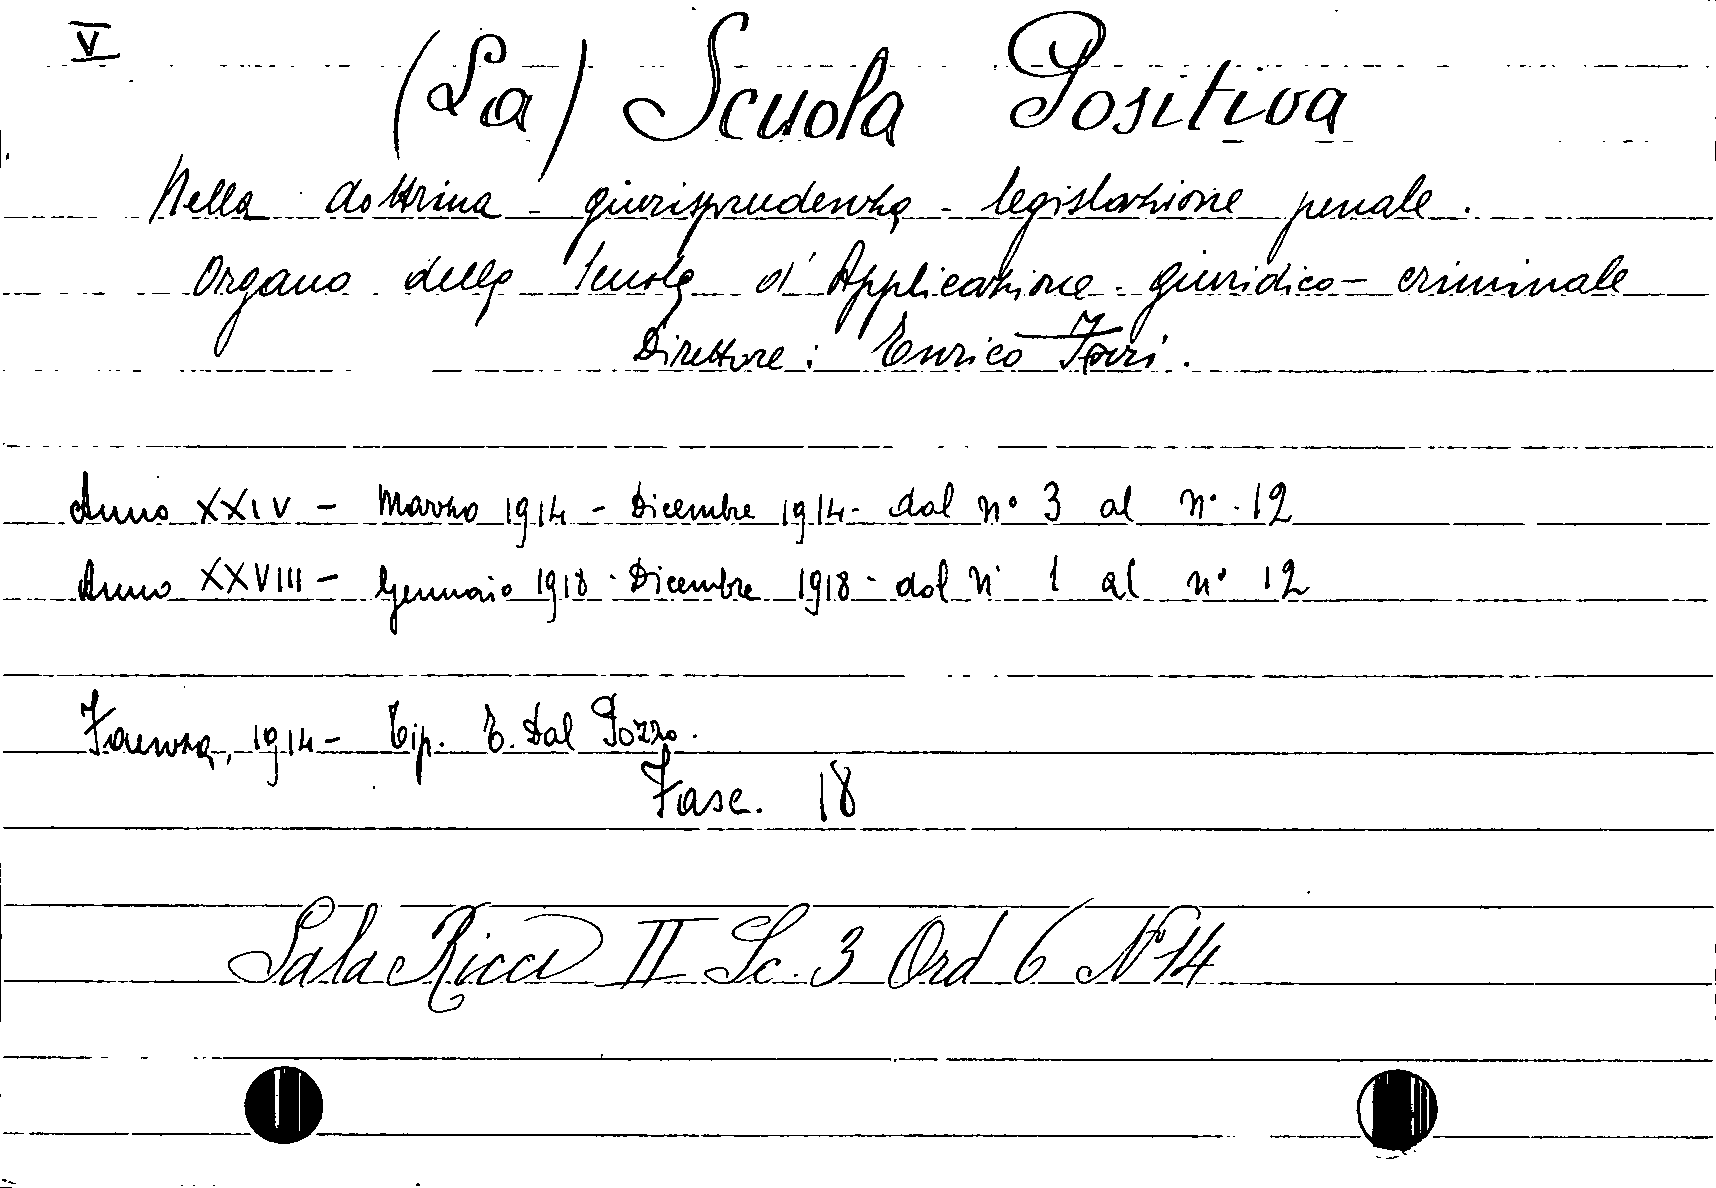 V
(La) Scuola Positiva
Nella dottrina - giurisprudenza - legislazione penale.
Organo della Scuola d'Applicazione giuridico - criminale
Direttore: Enrico Ferri.
Anno XXIV - Marzo 1914 - Dicembre 1914 - dal n° 3 al n° 12
Anno XXVIII - Gennaio 1918 - Dicembre 1918 - dal n° 1 al n° 12
Faenza, 1914 - Tip. E. Dal Pozzo.
Fasc. 18
Sala Ricci II Sc. 3 Ord 6 N° 14